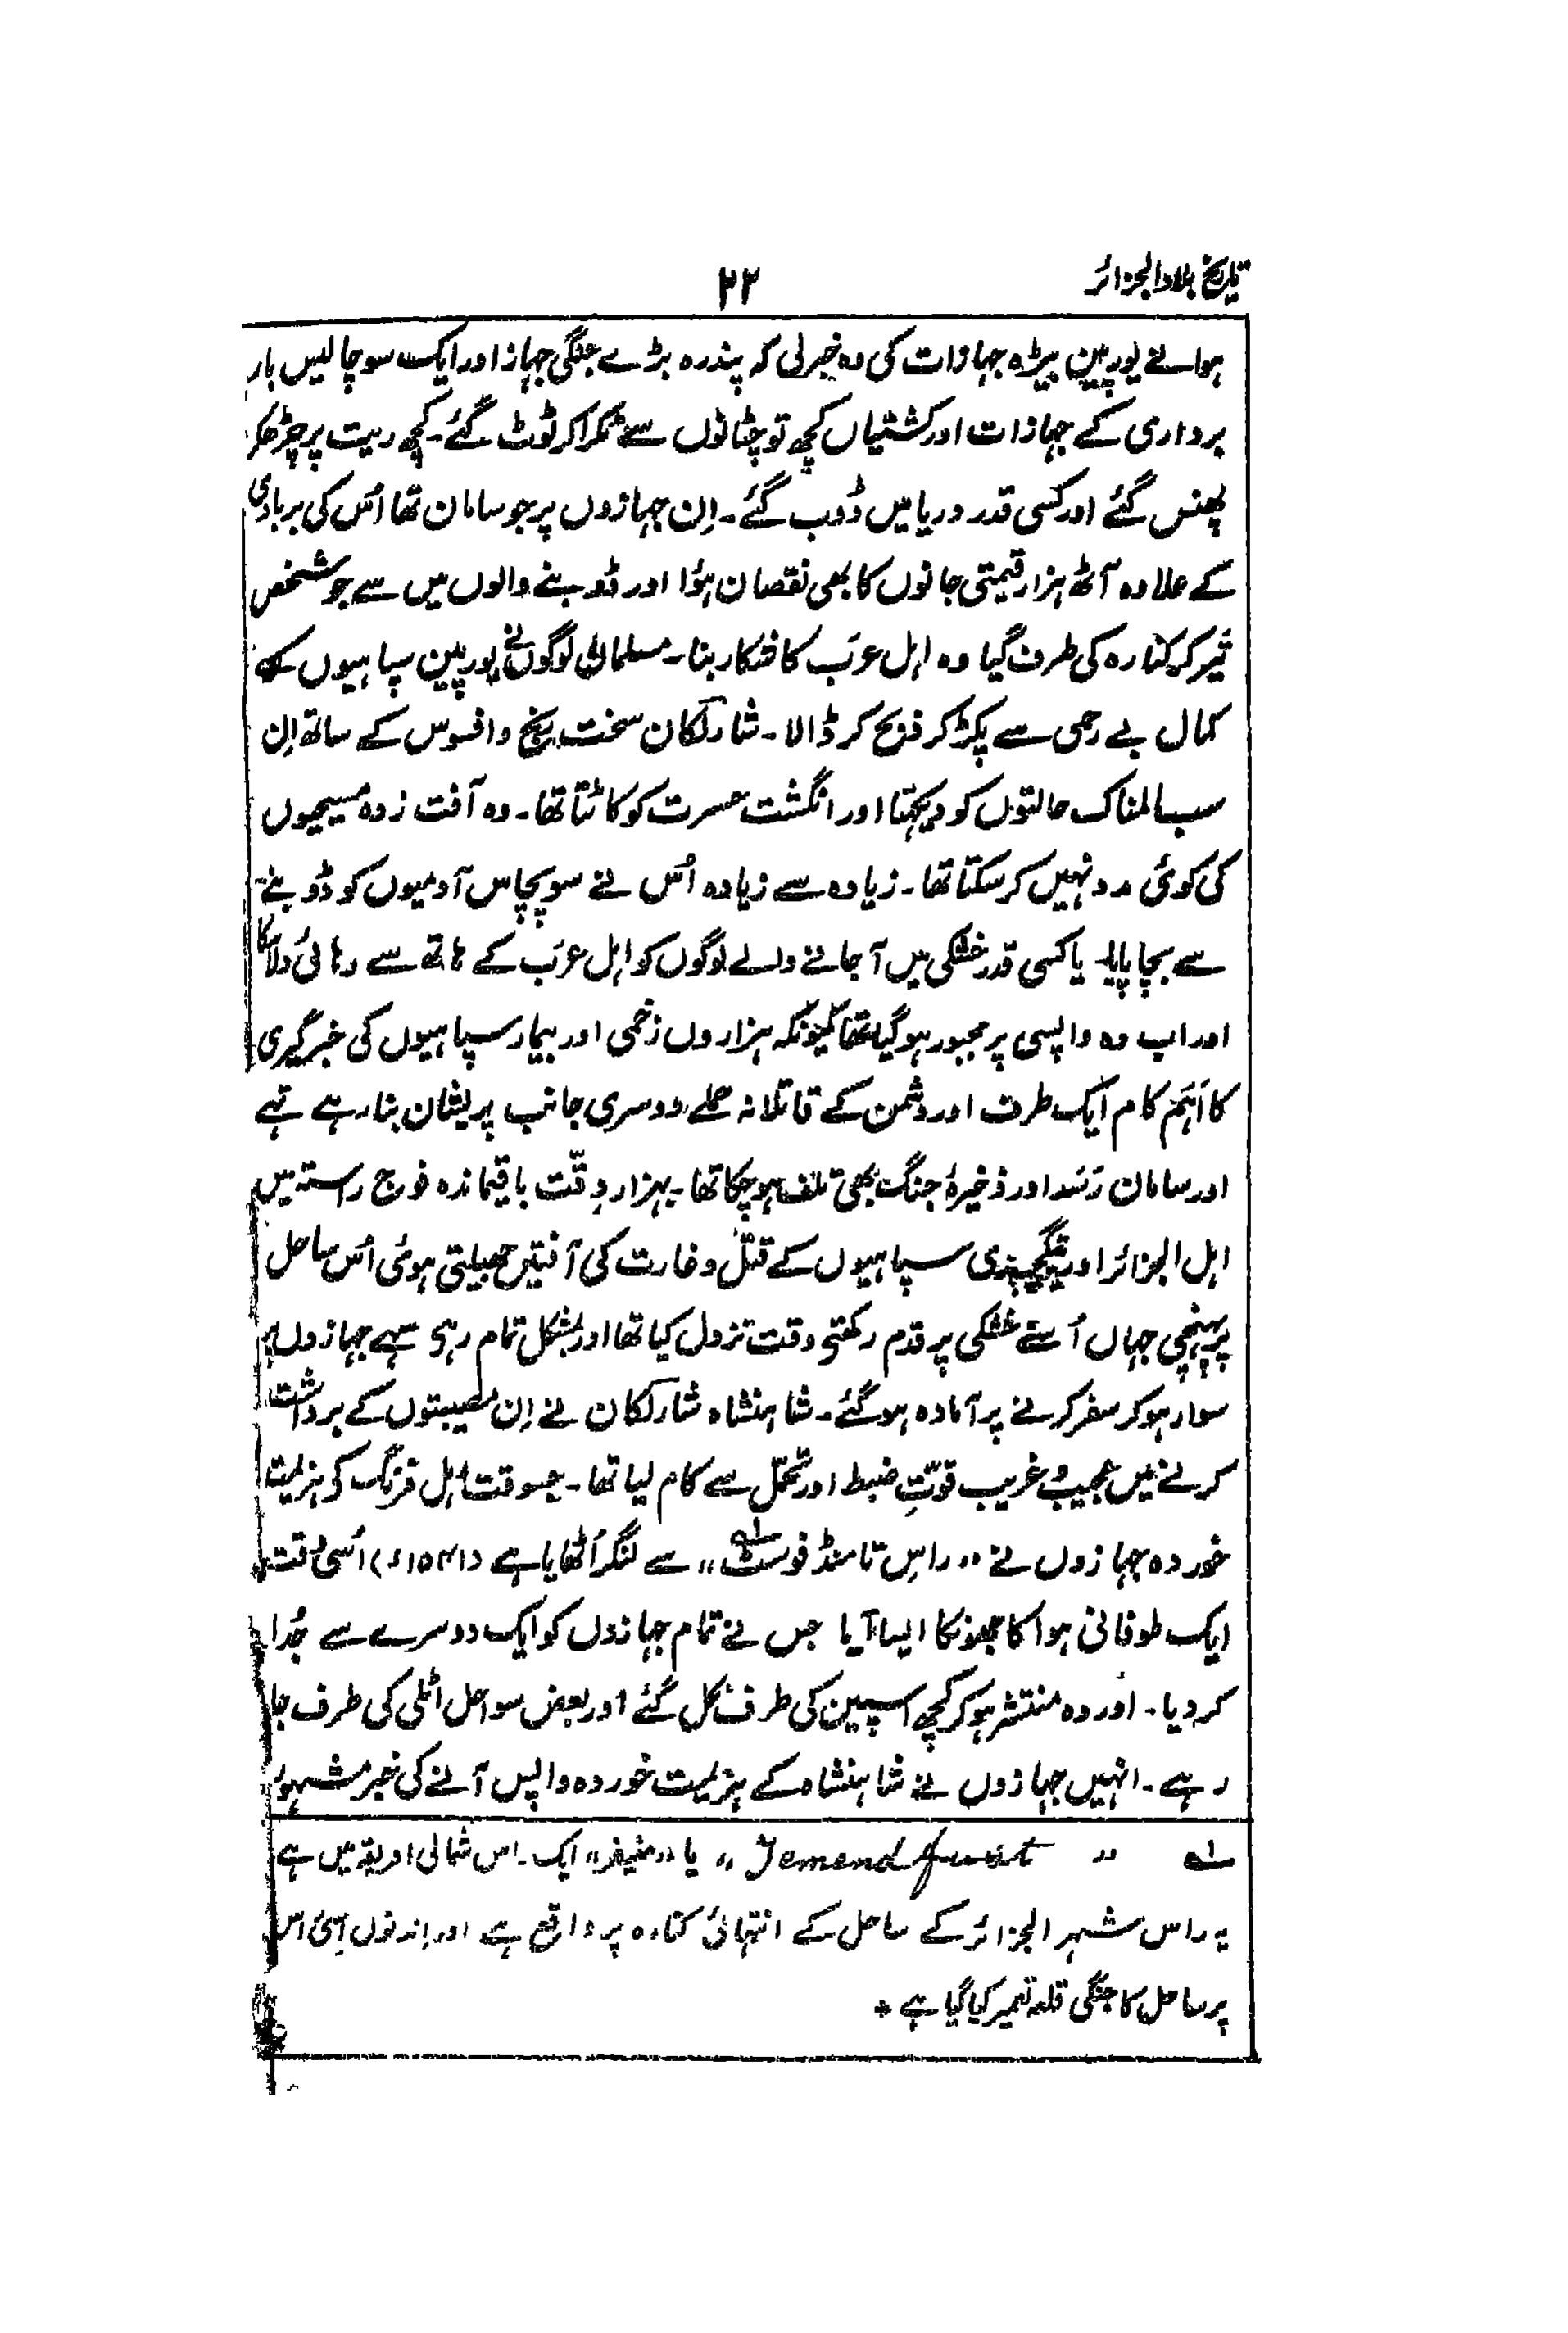 تاریخ بلاد الجزائر
۲۲
ہوا نے یورپین بیڑہ جہازات کی وہ خبر لی کہ پندرہ بڑے جنگی جہاز اور ایک سو چالیس بار
برداری کے جہازات اور کشتیاں کچھ تو چٹانوں سے ٹکرا کر ٹوٹ گئے۔ کچھ ریت پر چڑھکر
پھنس گئے اور کسی قدر دریا میں ڈوب گئے۔ اِن جہازوں پر جو سامان تھا اُس کی بربادی
کے علاوہ آٹھ ہزار قیمتی جانوں کا بھی نقصان ہؤا اور ڈوبنے والوں میں سے جو شخص
تَیر کر کنارہ کی طرف گیا وہ اہل عرَب کا شکار بنا۔ مسلمان لوگوں نے یورپین سپاہیوں کو
کمال بے رحمی سے پکڑ کر ذبح کر ڈالا۔ شارلکان سخت رنج و افسوس کے ساتھ اِن
سب المناک حالتوں کو دیکہتا اور انگشت حسرت کو کاٹتا تھا۔ وہ آفت زدہ مسیحیوں
کی کوئی مدد نہیں کر سکتا تھا۔ زیادہ سے زیادہ اُس نے سو پچاس آدمیوں کو ڈوبنے
سے بچا پایا۔ یا کسی قدر خشکی میں آ جانے والے لوگوں کو اہل عرَب کے ہاتھ سے رہائی دلا سکا
اور اب وہ واپسی پر مجبور ہو گیا تھا کیونکہ ہزاروں زخمی اور بیمار سپاہیوں کی خبرگیری
کا اَہَم کام ایک طرف اور دشمن کے قاتلانہ حملے دوسری جانب پریشان بنا رہے تہے
اور سامان رَسَد اور ذخیرۂ جنگ بھی تلف ہو چکا تھا۔ بہزار دِقّت باقیماندہ فوج راستہ میں
اہل الجزائر اور ینگچندی سپاہیوں کے قتل و غارت کی آفتیں جھیلتی ہوئی اُس ساحل
پر پہنچی جہاں اُسنے خشکی پر قدم رکھتے وقت نزول کیا تھا اور بمشکل تمام رہے سہے جہازوں پر
سوار ہو کر سفر کرنے پر آمادہ ہو گئے۔ شاہنشاہ شارلکان نے اِن مصیبتوں کے برداشت
کرنے میں عجیب و غریب قوّتِ ضبط اور تحمّل سے کام لیا تھا۔ جسوقت اہل فرنگ کو ہزیمت
خوردہ جہازوں نے „راسِ تامنڈ فوسٹ لہ" سے لنگر اُٹھایا ہے (۱۵۴۱ء) اُسی وقت
ایک طوفانی ہوا کا جھونکا ایسا آیا جس نے تمام جہازوں کو ایک دوسرے سے جُدا
کر دیا۔ اور وہ منتشر ہو کر کچھ اسپین کی طرف نکل گئے اور بعض سواحل اٹلی کی طرف جا
رہے۔ انہیں جہازوں نے شاہنشاہ کے ہزیمت خوردہ واپس آنے کی خبر مشہور
لہ „Temendfust" یا ایک راس شمالی افریقہ میں ہے
یہ راس شہر الجزائر کے ساحل کے انتہائی کنارہ پر واقع ہے اور اِندنوں اِسی راس
پر ساحل کا جنگی قلعہ تعمیر کیا گیا ہے +